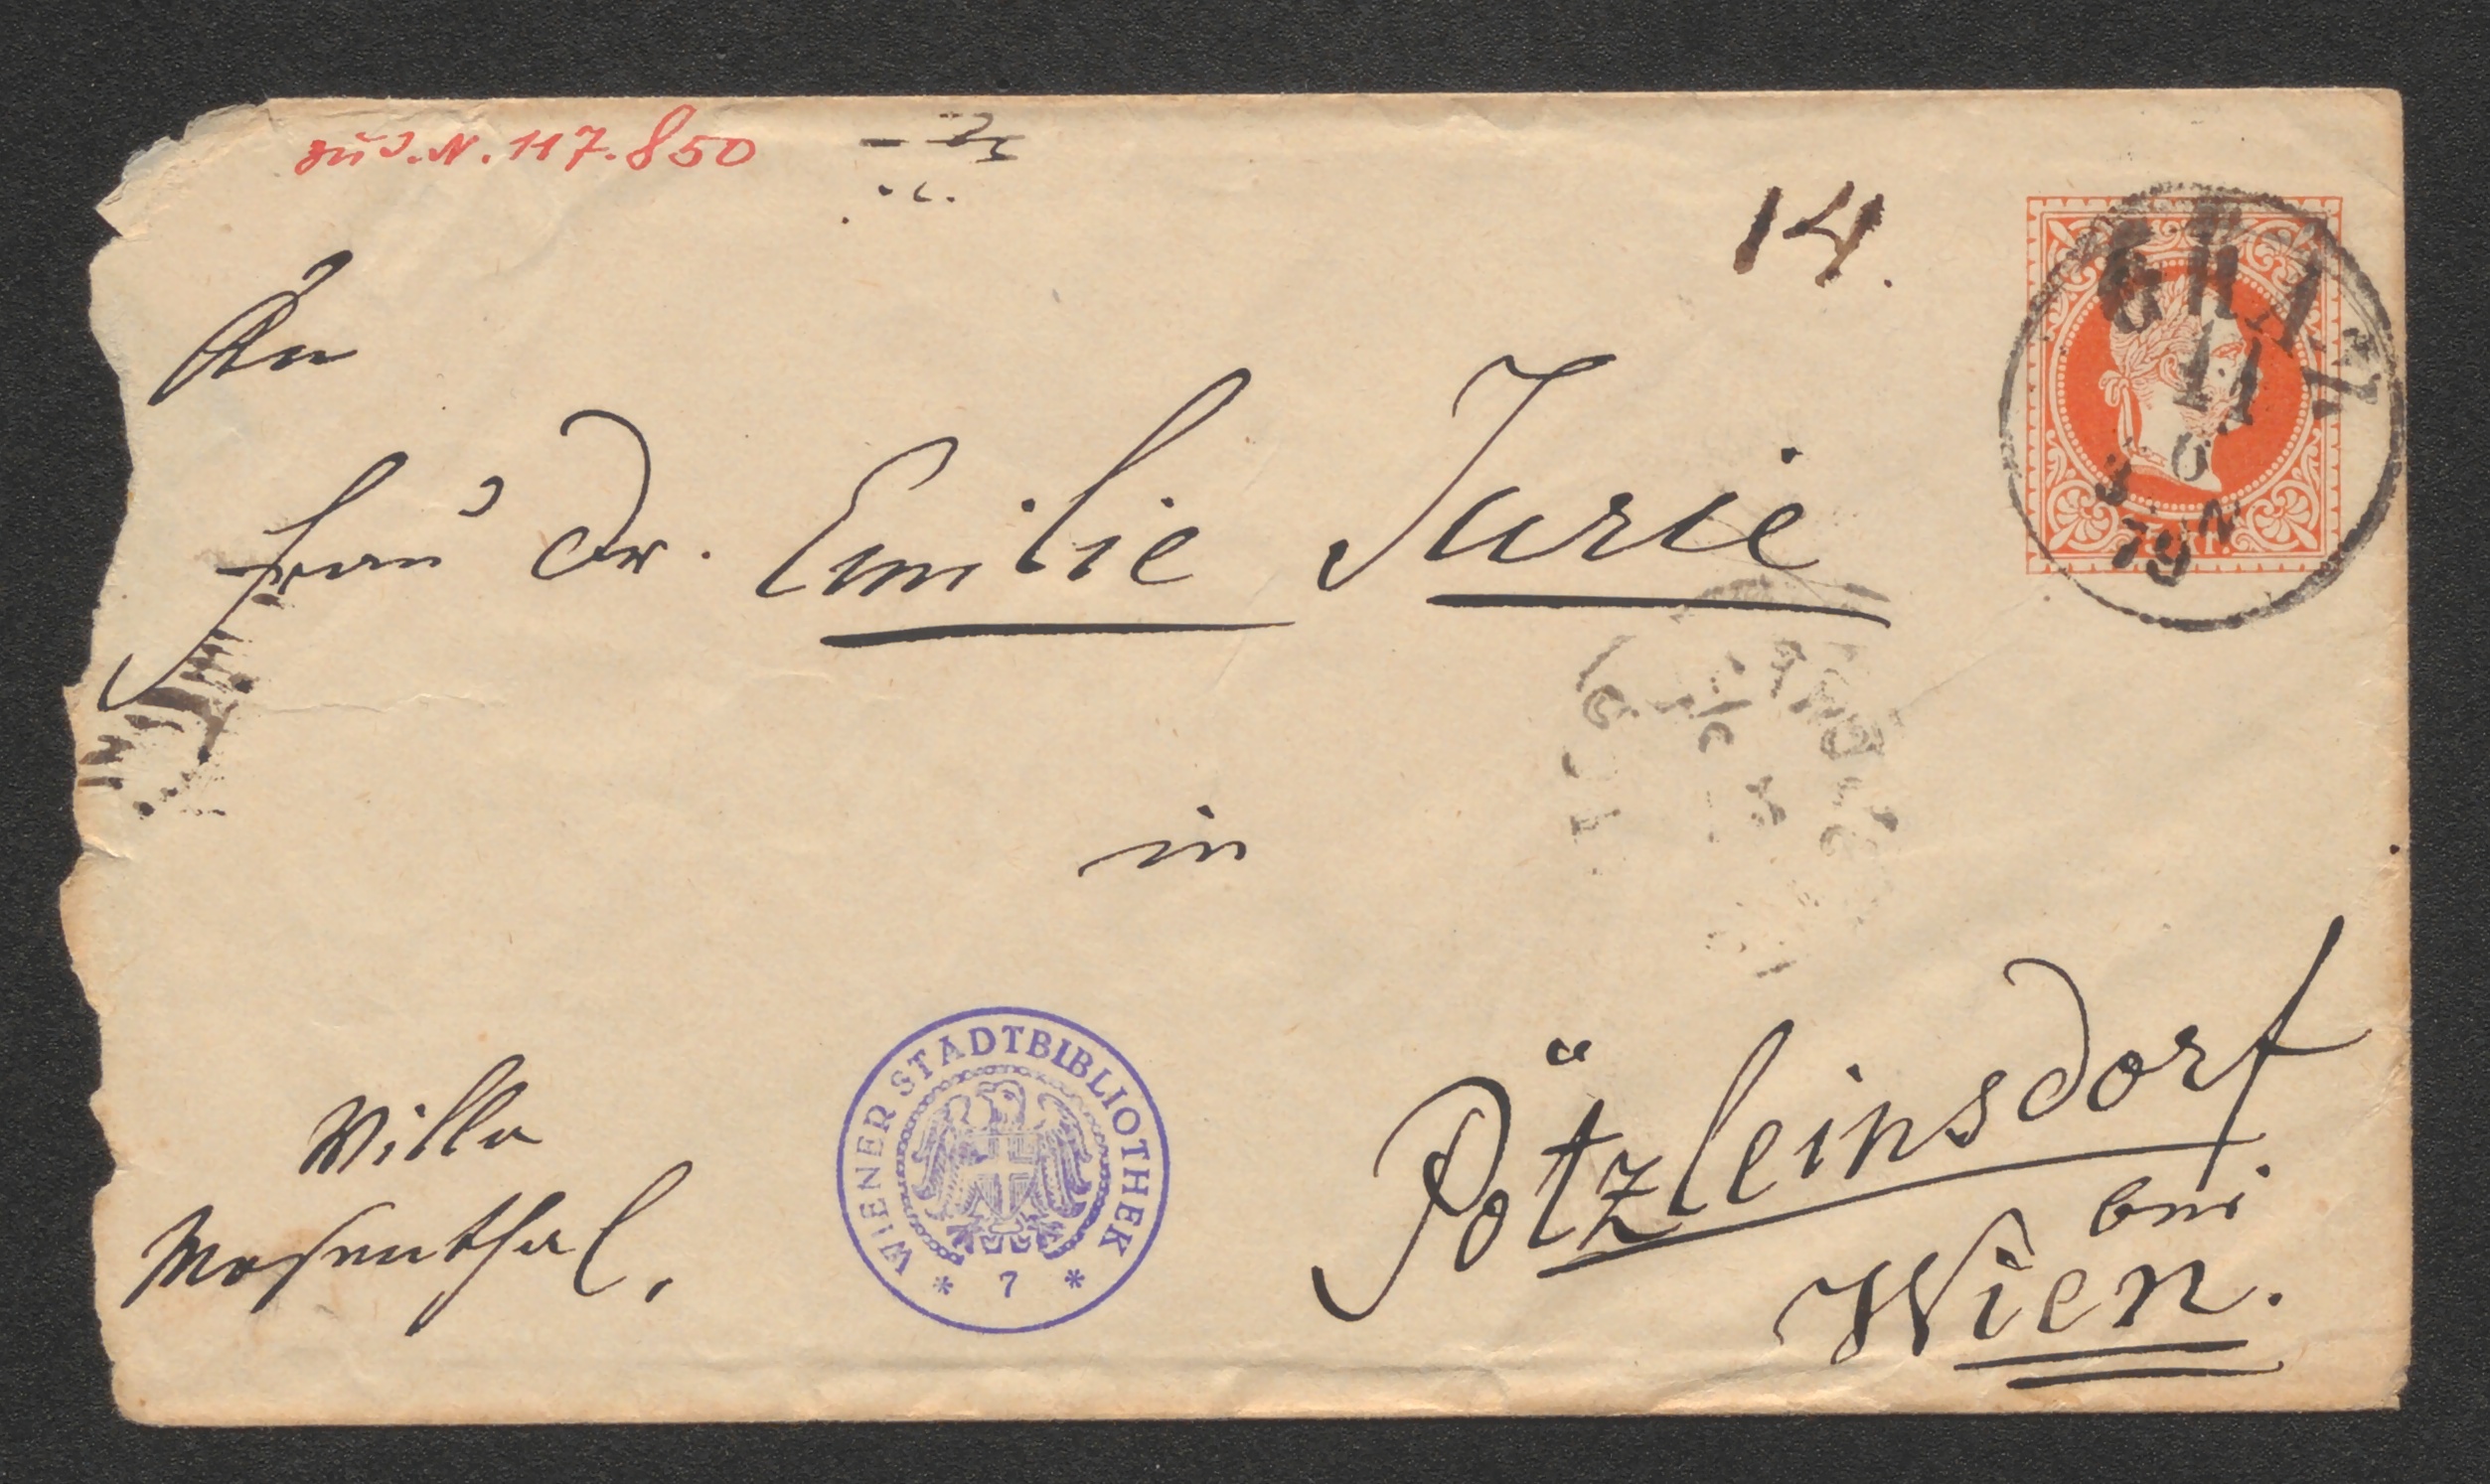 zu J.N. 117.850
14.
GRAZ
11
6
3 N
79
An
Frau Dr. Emilie Turie
in
Pötzleinsdorf
bei
Wien.
Villa
Mosenthal.
WIENER STADTBIBLIOTHEK
* 7 *